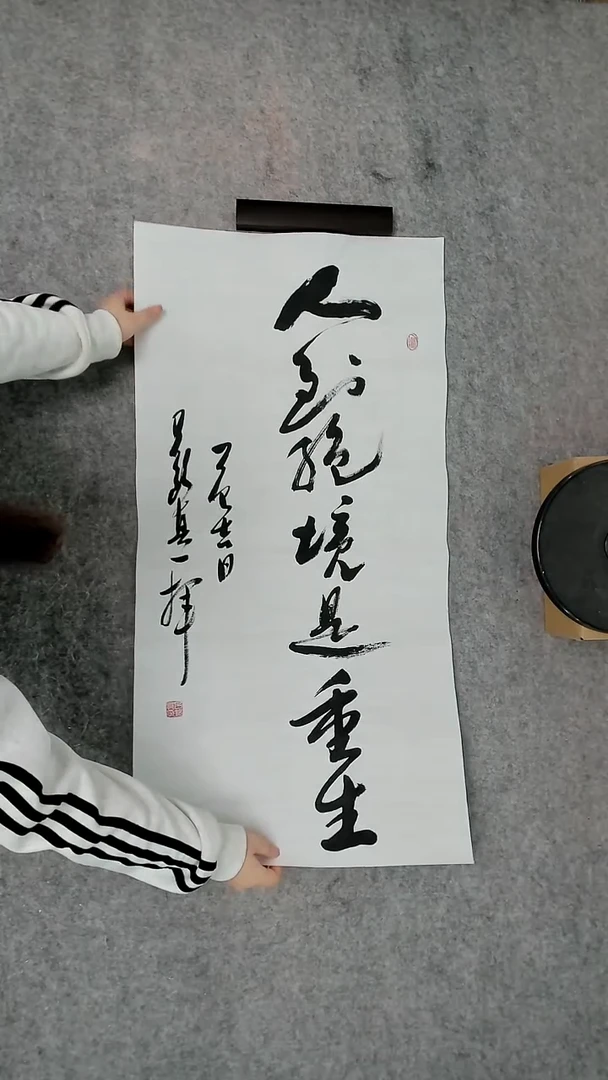 人到绝境是重生
吉日
真一挥